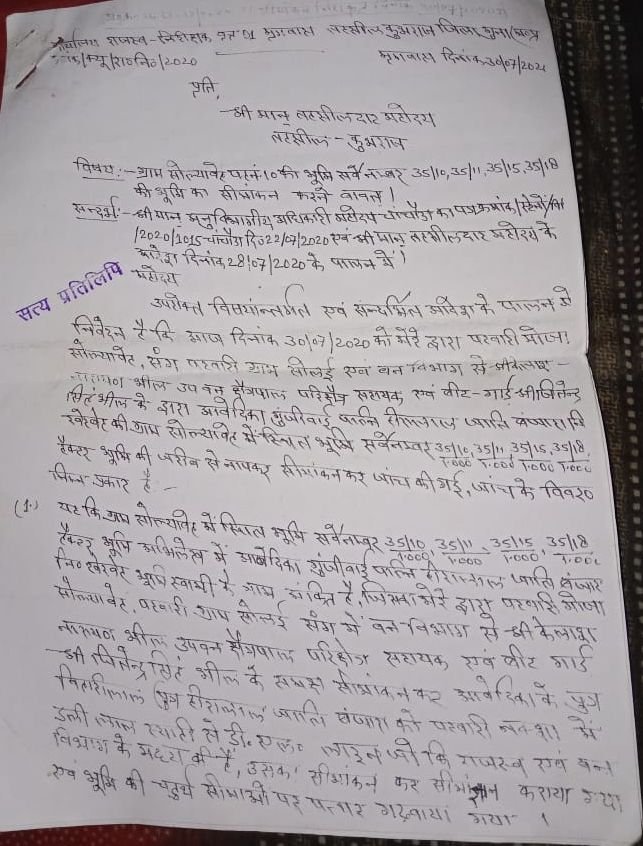 कार्यालय राजस्व-निरीक्षक वृत 01 मृगवास तहसील कुम्भराज जिला गुना (म०प्र०
क्यू/रा०नि०/2020 मृगवास दिनांक 30/07/2020
प्रति,
श्री मान् तहसीलदार महोदय
तहसील - कुम्भराज
विषय:- ग्राम सोल्यावेह प०ह०नं० 10 की भूमि सर्वे नम्बर 35/10, 35/11, 35/15, 35/18
की भूमि का सीमांकन करने बावत।
सन्दर्भ:- श्री मान अनुविभागीय अधिकारी महोदय चांचौड़ा का पत्र क्रमांक
/2020/2015 चांचौड़ा दि० 22/07/2020 एवं श्री मान् तहसीलदार महोदय के
आदेश दिनांक 28/07/2020 के पालन में।
सत्य प्रतिलिपि
महोदय
उपरोक्त विषयान्तर्गत एवं सन्दर्भित आदेश के पालन में
निवेदन है कि आज दिनांक 30/07/2020 को मेरे द्वारा पटवारी मौजा
सोल्यावेह, संग पटवारी ग्राम सोलई एवं वन विभाग से श्री कैलाश -
नारायण भील उप वन क्षेत्रपाल परिक्षेत्र सहायक एवं वीट-गार्ड श्री जितेन्द्र
सिंह भील के द्वारा आवेदिका गुंजीवाई पत्नि हीरालाल जाति बंजारा नि०
की ग्राम सोल्यावेह में स्थित भूमि सर्वे नम्बर 35/10, 35/11, 35/15, 35/18
1.000 1.000 1.000 1.000
हैक्टर भूमि की जरीव से नापकर सीमांकन कर जांच की गई, जांच के विवरण
निम्न प्रकार है -
(1.) यह कि ग्राम सोल्यावेह में स्थित भूमि सर्वे नम्बर 35/10, 35/11, 35/15, 35/18
1.000 1.000 1.000 1.000
हैक्टर भूमि अभिलेख में आवेदिका गुंजीवाई पत्नि हीरालाल जाति बंजारा
नि० भूमि स्वामी के नाम अंकित है, जिसका मेरे द्वारा पटवारी मौजा
सोल्यावेह, पटवारी ग्राम सोलई संग में वन विभाग से श्री कैलाश
नारायण भील उपवन क्षेत्रपाल परिक्षेत्र सहायक एवं वीट गार्ड
श्री जितेन्द्र सिंह भील के समक्ष सीमांकन कर आवेदिका के पुत्र
विहारीलाल पुत्र हीरालाल जाति बंजारा को पटवारी नक्शा में
डली लाल स्याही से डी. एल. लाइन जो कि राजस्व एवं वन
विभाग के मध्य की है, उसका सीमांकन कर सीमा कराया गया
एवं भूमि की चतुर्थ सीमाओं पर पत्थर गढ़वाया गया।